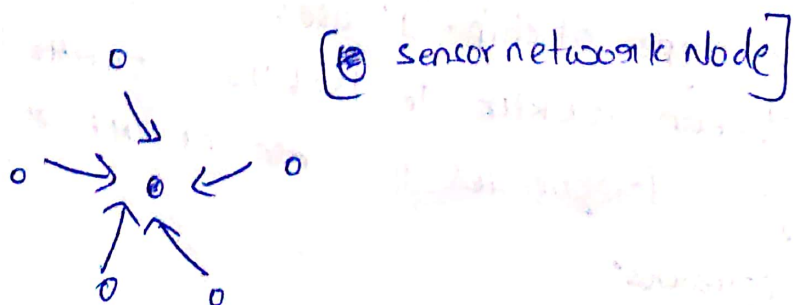 [ sensor network Node]